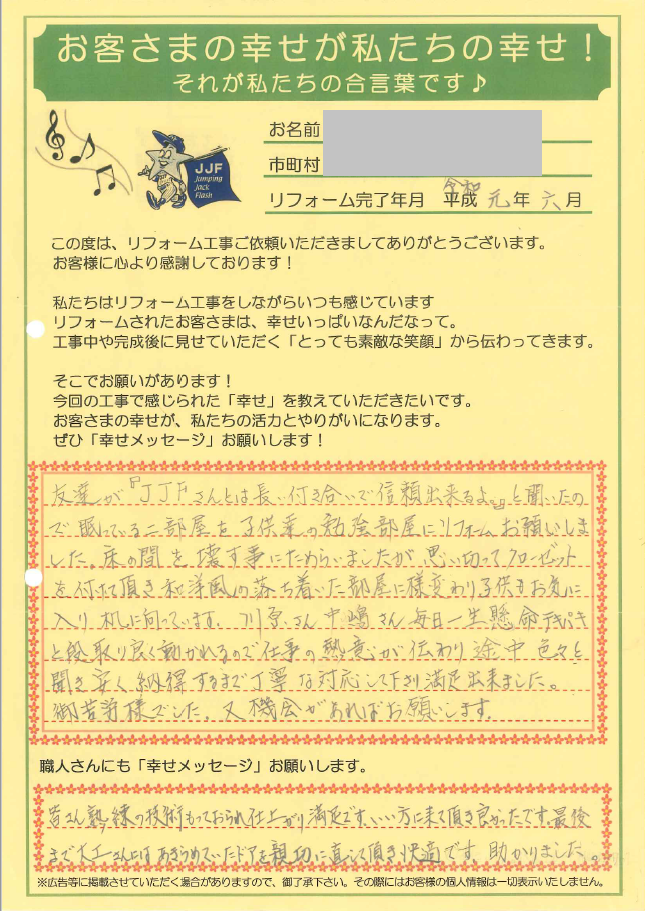 お客さまの幸せが私たちの幸せ！
それが私たちの合言葉です♪
JJF
Jumping
Jack
Flash
お名前
市町村
令和
リフォーム完了年月 平成 元 年 六 月
この度は、リフォーム工事ご依頼いただきましてありがとうございます。
お客様に心より感謝しております！
私たちはリフォーム工事をしながらいつも感じています
リフォームされたお客さまは、幸せいっぱいなんだなって。
工事中や完成後に見せていただく「とっても素敵な笑顔」から伝わってきます。
そこでお願いがあります！
今回の工事で感じられた「幸せ」を教えていただきたいです。
お客さまの幸せが、私たちの活力とやりがいになります。
ぜひ「幸せメッセージ」お願いします！
友達が『JJFさんとは長い付き合いで信頼出来るよ。』と聞いたの
で眠っている二部屋を子供業の勉強部屋にリフォームお願いしま
した。床の間を壊す事にためらいましたが思い切ってクローゼット
を付けて頂き和洋風の落ち着いた部屋に様変わり子供もお気に
入り机に向っています。川原さん中嶋さん毎日一生懸命テキパキ
と段取り良く動かれるので仕事の熱意が伝わり途中色々と
聞き安く納得するまで丁寧な対応して下さり満足出来ました。
御苦労様でした。又機会があればお願いします。
職人さんにも「幸せメッセージ」お願いします。
皆さん熟練の技術もっておられ仕上がり満足です。いい方に来て頂き良かったです。最後
まで大工さんにはあきらめていたドアを親切に直して頂き快適です。助かりました。
※広告等に掲載させていただく場合がありますので、御了承下さい。その際にはお客様の個人情報は一切表示いたしません。